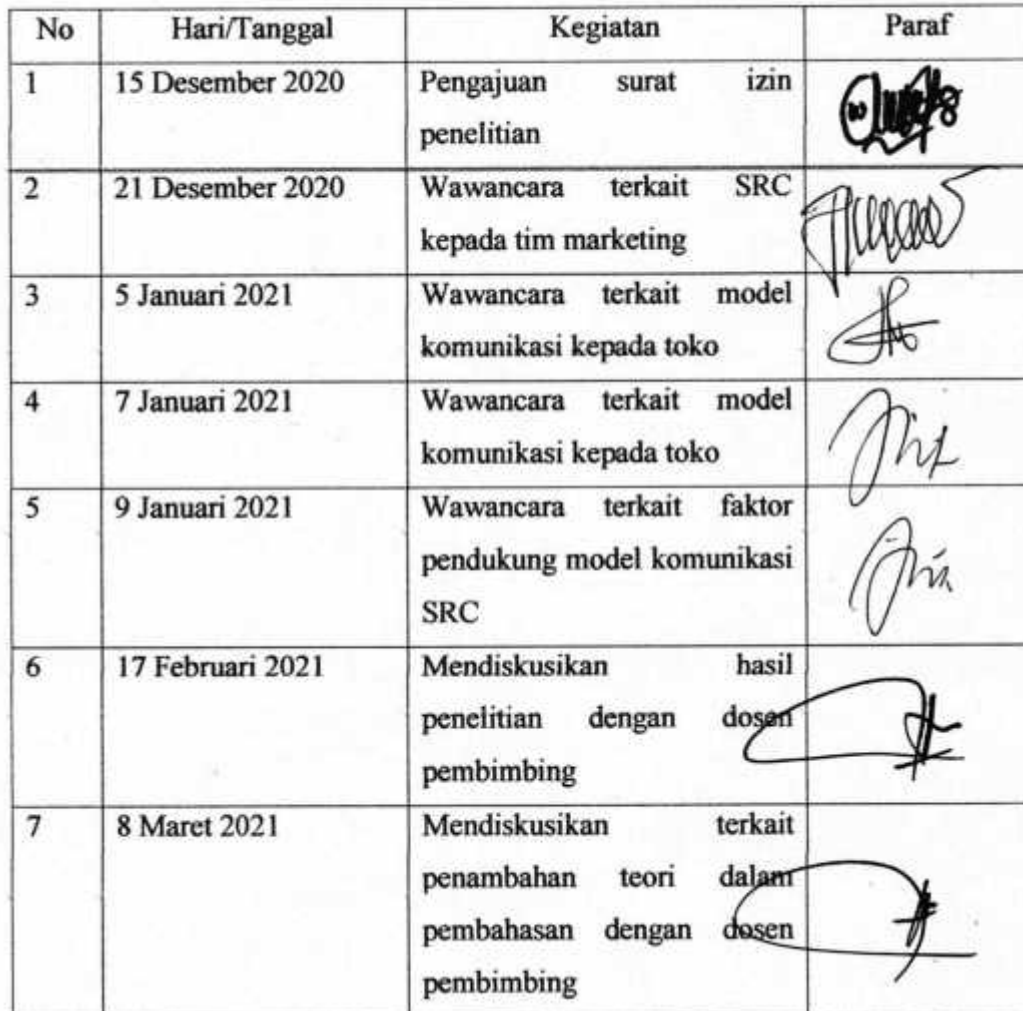 No Hari/Tanggal Kegiatan Paraf
1 15 Desember 2020 Pengajuan surat izin
penelitian
2 21 Desember 2020 Wawancara terkait SRC
kepada tim marketing
3 5 Januari 2021 Wawancara terkait model
komunikasi kepada toko
4 7 Januari 2021 Wawancara terkait model
komunikasi kepada toko
5 9 Januari 2021 Wawancara terkait faktor
pendukung model komunikasi
SRC
6 17 Februari 2021 Mendiskusikan hasil
penelitian dengan dosen
pembimbing
7 8 Maret 2021 Mendiskusikan terkait
penambahan teori dalam
pembahasan dengan dosen
pembimbing